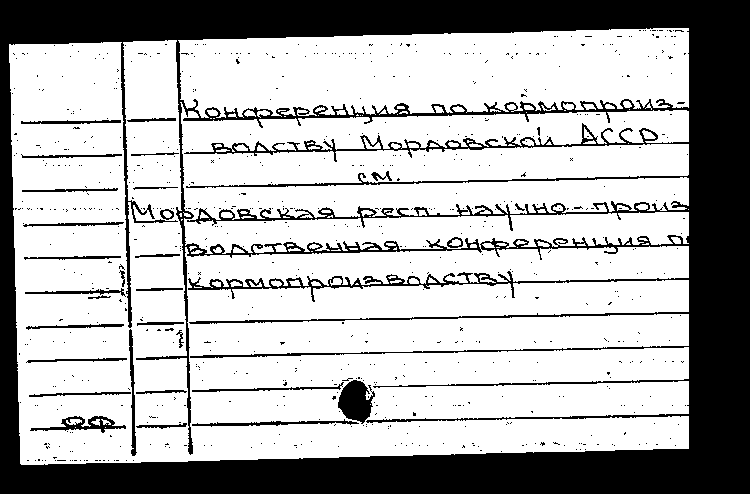 Конференция по кормопроиз-
водству Мордовской АССР
см.
Мордовская респ. научно-произ
водственная конференция по
кормопроизводству
ОФ